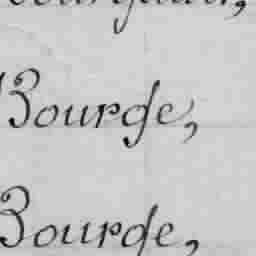 Bourge,
Bourge,